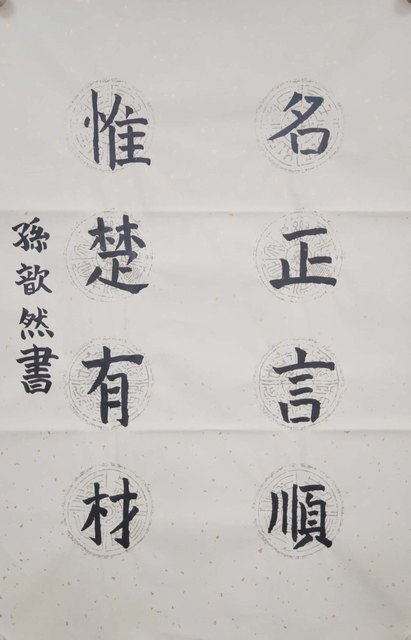 名正言順
惟楚有材
孫歆然書